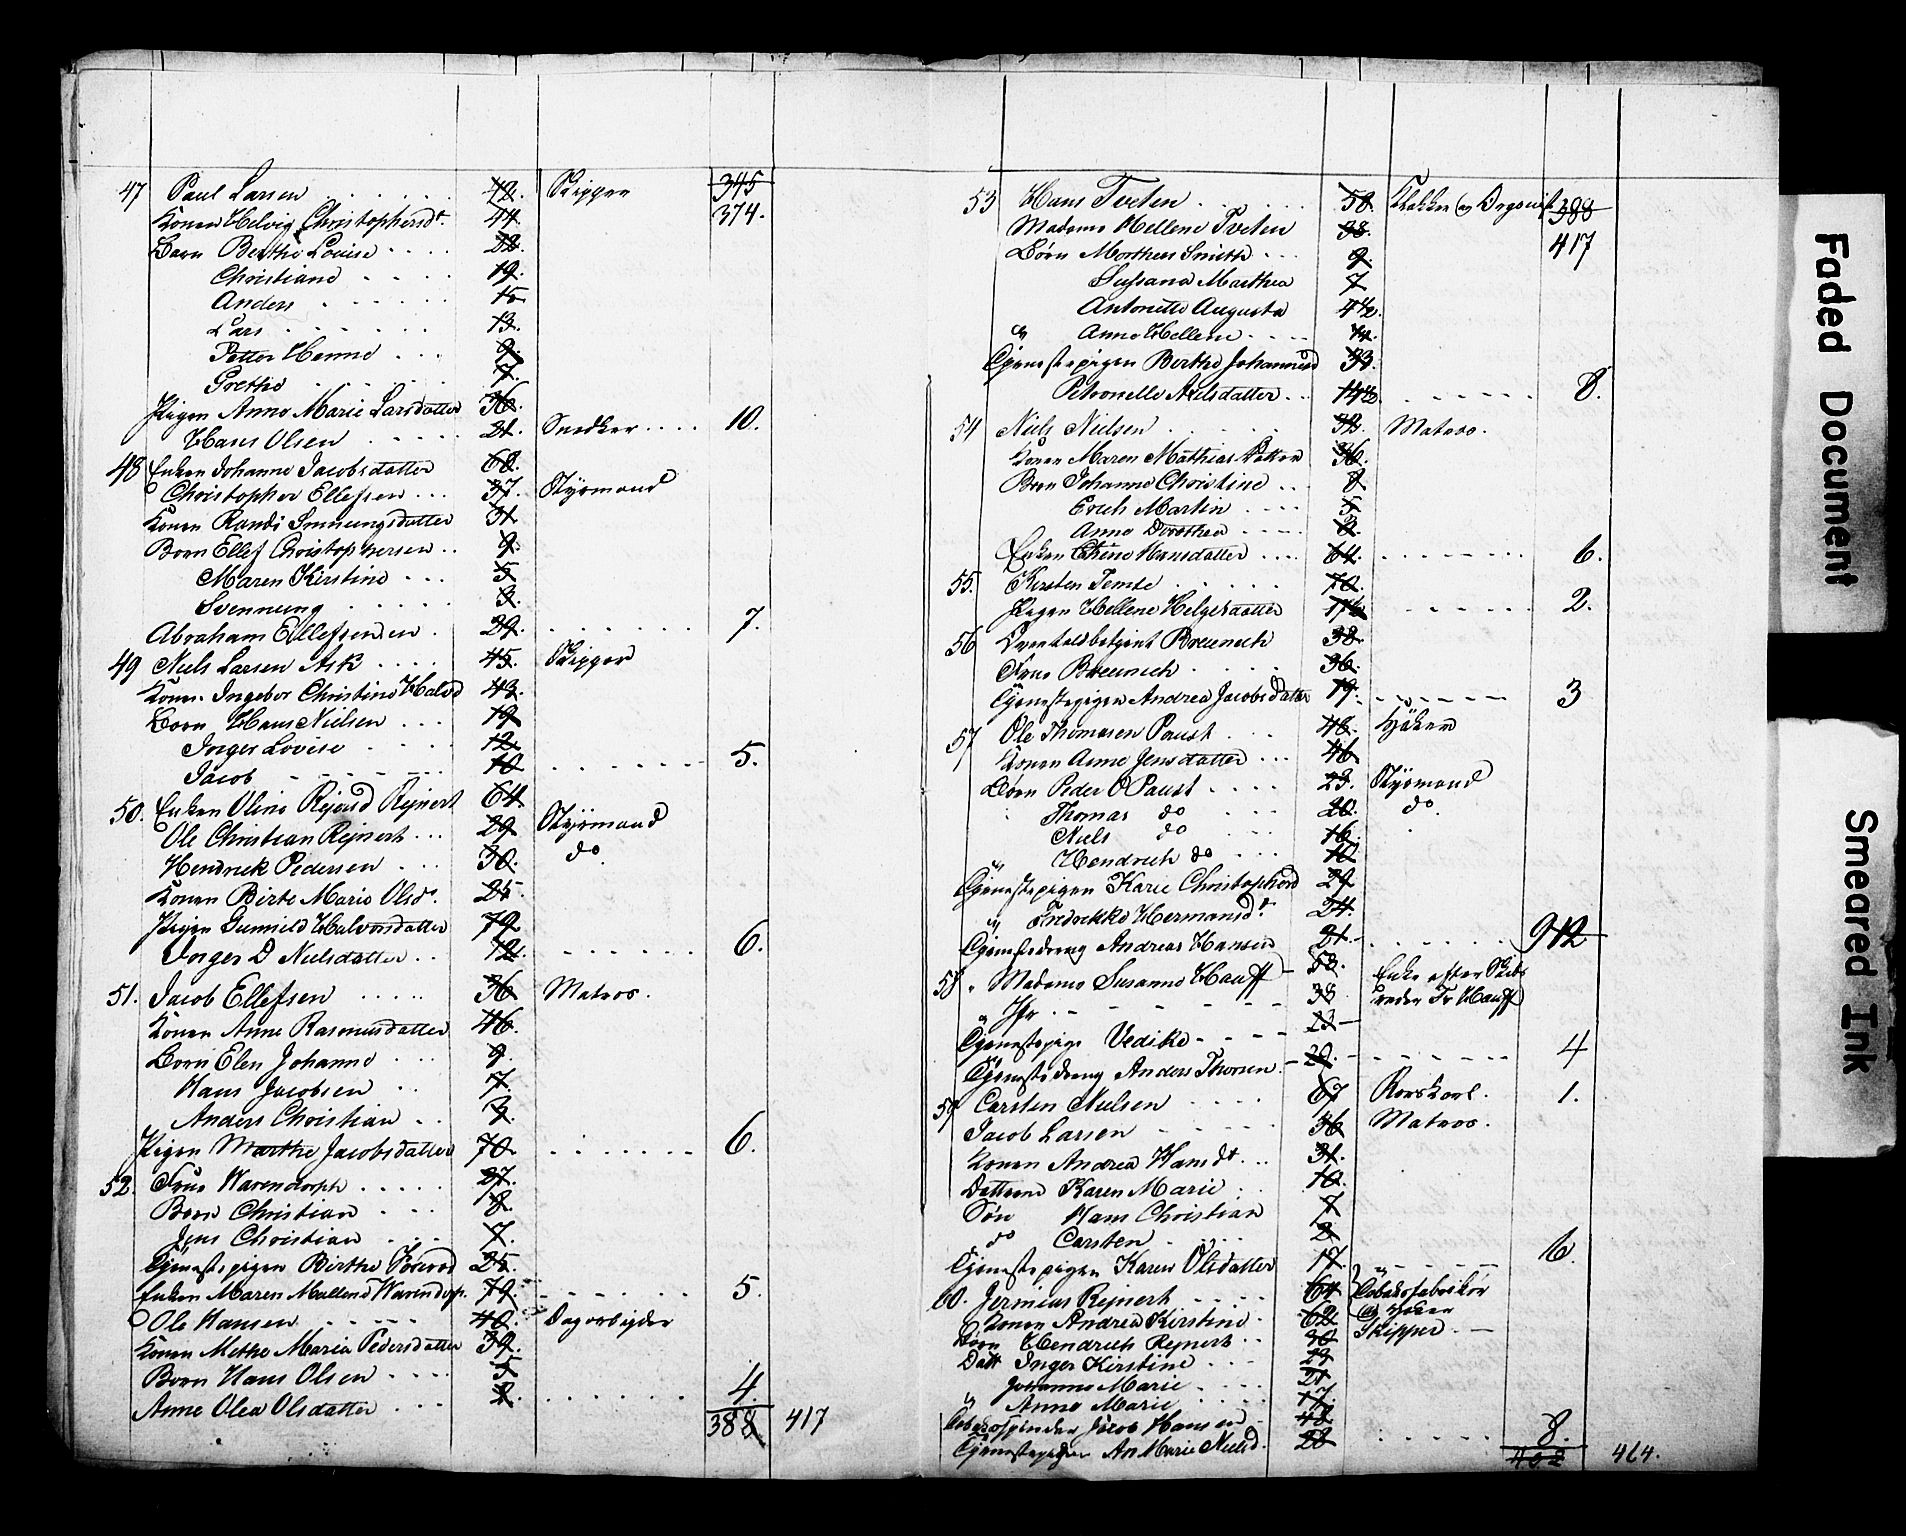 47 Paul Larsen . . . . . 42. Skipper 345
Konen Helvig Christophersdt. 44. 374.
Børn Berthe Lovise . . . . 22.
Christiane . . . . 19.
Anders . . . . . . 15
Lars . . . . . . 13.
Petter Hanne . . . 9.
Grethe . . . . . 7.
Pigen Anne Marie Larsdatter 36.
Hans Olsen . . . . . 21. Snedker . . . . 10.
48 Enken Johanne Jacobsdatter 68.
Christopher Ellefsen . . . 37. Styrmand
Konen Randi Svenungsdatter 31.
Børn Ellef Christophersen . . 9.
Maren Kirstine . . . 5
Svennung . . . . . 3.
Abraham Ellefsen . 29. . . . . . . 7.
49 Niels Larsen Ask . . . . 45. Skipper
Konen Ingebor Christine Halvd 43.
Børn Hans Nielsen . . . 19
Inger Lovise . . . . 12.
Jacob - - - - - . . . 10 . . . . . . 5.
50. Enken Oline Rejnert 64.
Ole Christian Rejnert . . . 29 Styrmand
Hendrick Pedersen . . . 30. do.
Konen Birte Marie Olsd. 25
Pigen Gunnild Halvorsdatter 79.
Inger D Nielsdatter . . 12. . . . . . . 6.
51. Jacob Ellefsen . . . . . 36 Matros.
Konen Anne Rasmusdatter 46.
Børn Elen Johanne . . . 9.
Hans Jacobsen . . 7.
Anders Christian . . 3.
Pigen Marthe Jacobsdatter 70. . . . . . . 6.
52. Frue Warendorph . . . . . 27.
Børn Christian . . . 8.
Jens Christian . . . 7.
Tjenestepigen Birthe 25.
Enken Maren Warendorp. 79. . . . . . . 5.
Ole Hansen . . . . . 40. Dagarbejder
Konen Methe Maria Pedersdatter 39.
Børn Hans Olsen . . . . 5
Anne Olea Olsdatter . . . 2. . . . . . . 4.
388 417
53 Hans Tveten . . . . . . 58. Klokker og Orgenist 388
Madame Hellene Tveten 38. 417
Børn Morthees Smith . . . 9.
Susana Marthea 7
Antonette Augusta 4½.
" Anne Hellene . . . .
Tjenestepigen Berthe Johannesd 33.
Petronelle Nielsdatter . . 14½. . . . . . . 8.
54 Niels Nielsen . . . . . Matros.
Konen Maren Mathiasdatter 36.
Børn Johanne Christine . . . 8.
Erich Martin . . . . 5
Anne Dorothea . . . . 3.
Enken Hansdatter . . . . 64. . . . . . . . 6.
55. Kirsten Temte . . . . . 70.
Pigen Hellene Helgesdatter . . . . . . 2.
56 Breunich 38.
Frue Breunich . . . . . 36.
Tjenestepigen Andrea Jacobsdatter 19. . . . . . . 3
57 Ole Thomasen Paust . . . 48. Høker
Konen Anne Jensdatter . . . 46
Børn Peder O Paust . . . . 23. Styrmand
Thomas do . . . 20. do.
Niels do . . . 16.
" Hendrich do . . . 10.
Tjenestepigen Karie Christophersd 29
" Fredrekke Hermansdt. 24.
Tjenestedreng Andreas Hansen 21. . . . . . . 912
58 " Madame Susanne Hauff - 53. Enke efter Skibs
" Jfr. - - - - - - 38 reder Fr Hauff
Tjenestepige Vedike - . . 23 -
Tjenestedreng Anders Thorsen. - 20. - - - - - - 4
59 Carsten Nielsen . . . . 67 Rorskarl. 1.
Jacob Larsen . . . . . 36 Matros.
Konen Andrea Hansdt. . . 31.
Dattere Karen Marie . . 10.
Søn Hans Christian 7
do Carsten . . . . 2.
Tjenestepigen Karen Olsdatter 17. . . . . . . 6.
60. Jermias Rejnert . . . . 64 Tobaksfabrikør
Konen Andrea Kirstine . 62 og Høker
Børn Hendrich Rejnert . . 30 Skipper . -
Datt Inger Kirstine . . . 29
Johanne Marie . . . . 21
" Anne Marie . . . . . 17.
Tobakspinder Jacob Hansen - 48
Tjenestepigen An Marie Nielsd. 28 . . . . . . 8.
464.